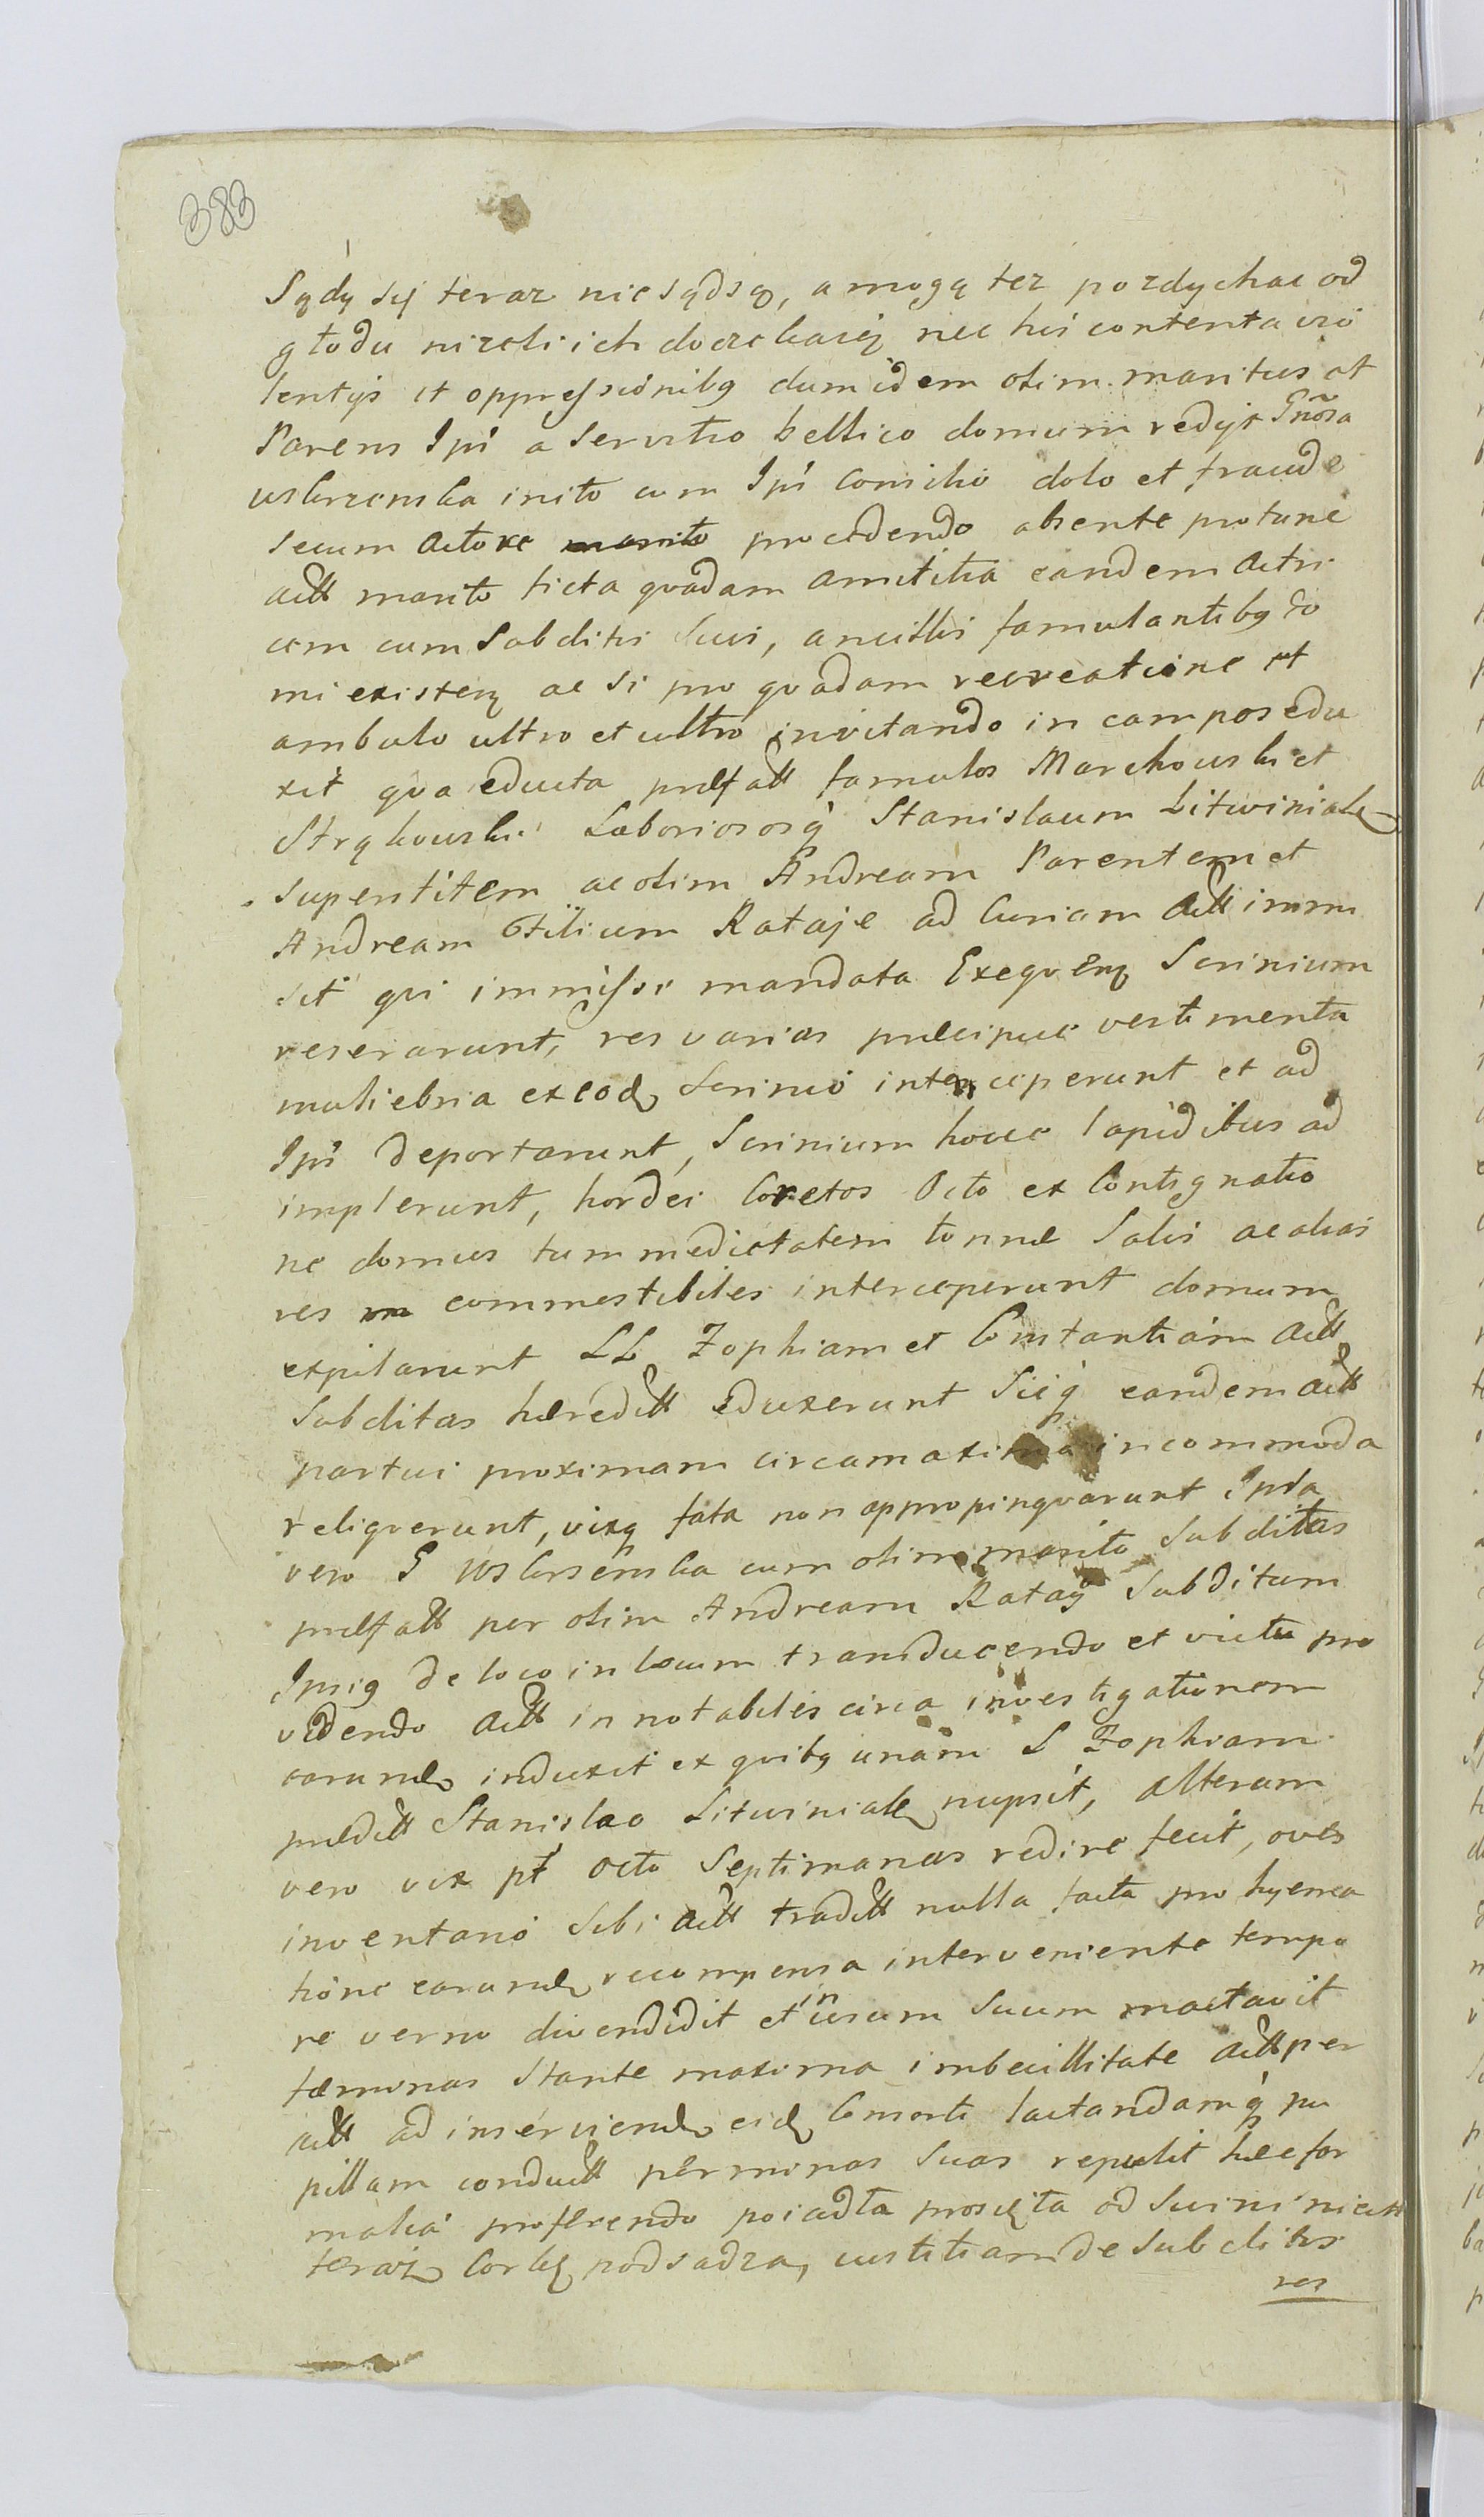 383
Sądy się teraz nie sądsą, a mogą też pozdychac od
głodu nizeli ich doczekaią nec his contenta vio
lentijs et oppressionibq dum idem olim maritus et
Parens Ipś a Servitio bellico domum redijt Gnõsa
uskrzenska inito cum Ipś Consilio dolo et fraude
secum Actore marito procedendo absente protunc
actt marito ficta qvadam amicitia eandem Actri
cem cum Subditis Suis, ancillis famulantibq do
mi existen ac si pro qvadam recreatione et
ambulo ultro et ultro invitando in campos edu
xit qva educta præfatt famulos Marchouski et
Strykouski Laboriososq Stanislaum Litwiniak
supertitem ac olim Andream Parentem et
Andream Filium Rataje ad Curiam Actt immi
sit qvi immissi mandata Exeqven Scrinium
reserarunt, res varias præcipue vestimenta
muliebria ex eod Scrinio interceperunt et ad
Ipś deportarunt, Scrinium hocce lapidibus ad
implerunt, hordei Coretos Octo ex Contignatio
ne domus tum medietatem tonnæ Salis ac alias
res commestibiles interceperunt domum
expilarunt LL Zophiam et Constantiam Actt
Subditas hæreditt eduxerunt Sicq eandem Actt
partui proximam circa maxima incommoda
reliqverunt, vixq fata non appropinqvarunt Ipsa
vero G uskrsenska cum olim marito Subditas
præfatt per olim Andream Rataij Subditum
Ipsiq de loco in locum transducendo et victu pro
videndo Actt in notabiles circa investigationem
earund induxit ex qvibq unam L Zophiam
prædictt Stanislao Litwiniak nupsit, alteram
vero vix pt octo Septimanas redire fecit, oves
inventario Sibi Actt traditt nulla facta pro hyema
tione earund recompensa interveniente tempo
re verno divendidit et in usum Suum mactavit
fæminas Stante maxima imbecillitate Actt per
actt ad inserviend eid Consorti lactandamq pu
pillam conductt per minas Suas repulit hæc for
malia proferendo poiadła prosięta od Swini niech
teraz Corkę podsadza, iustitiam de Subditis
res